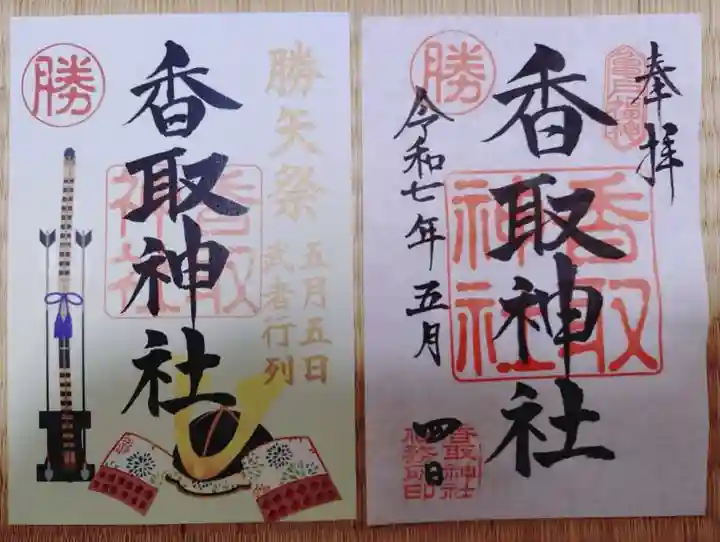 勝
香取神社
香取神社
勝矢祭
五月五日
武者行列
奉拝
亀戸
香取神社
香取神社
勝
令和七年五月
四日
香取神社
社務所印